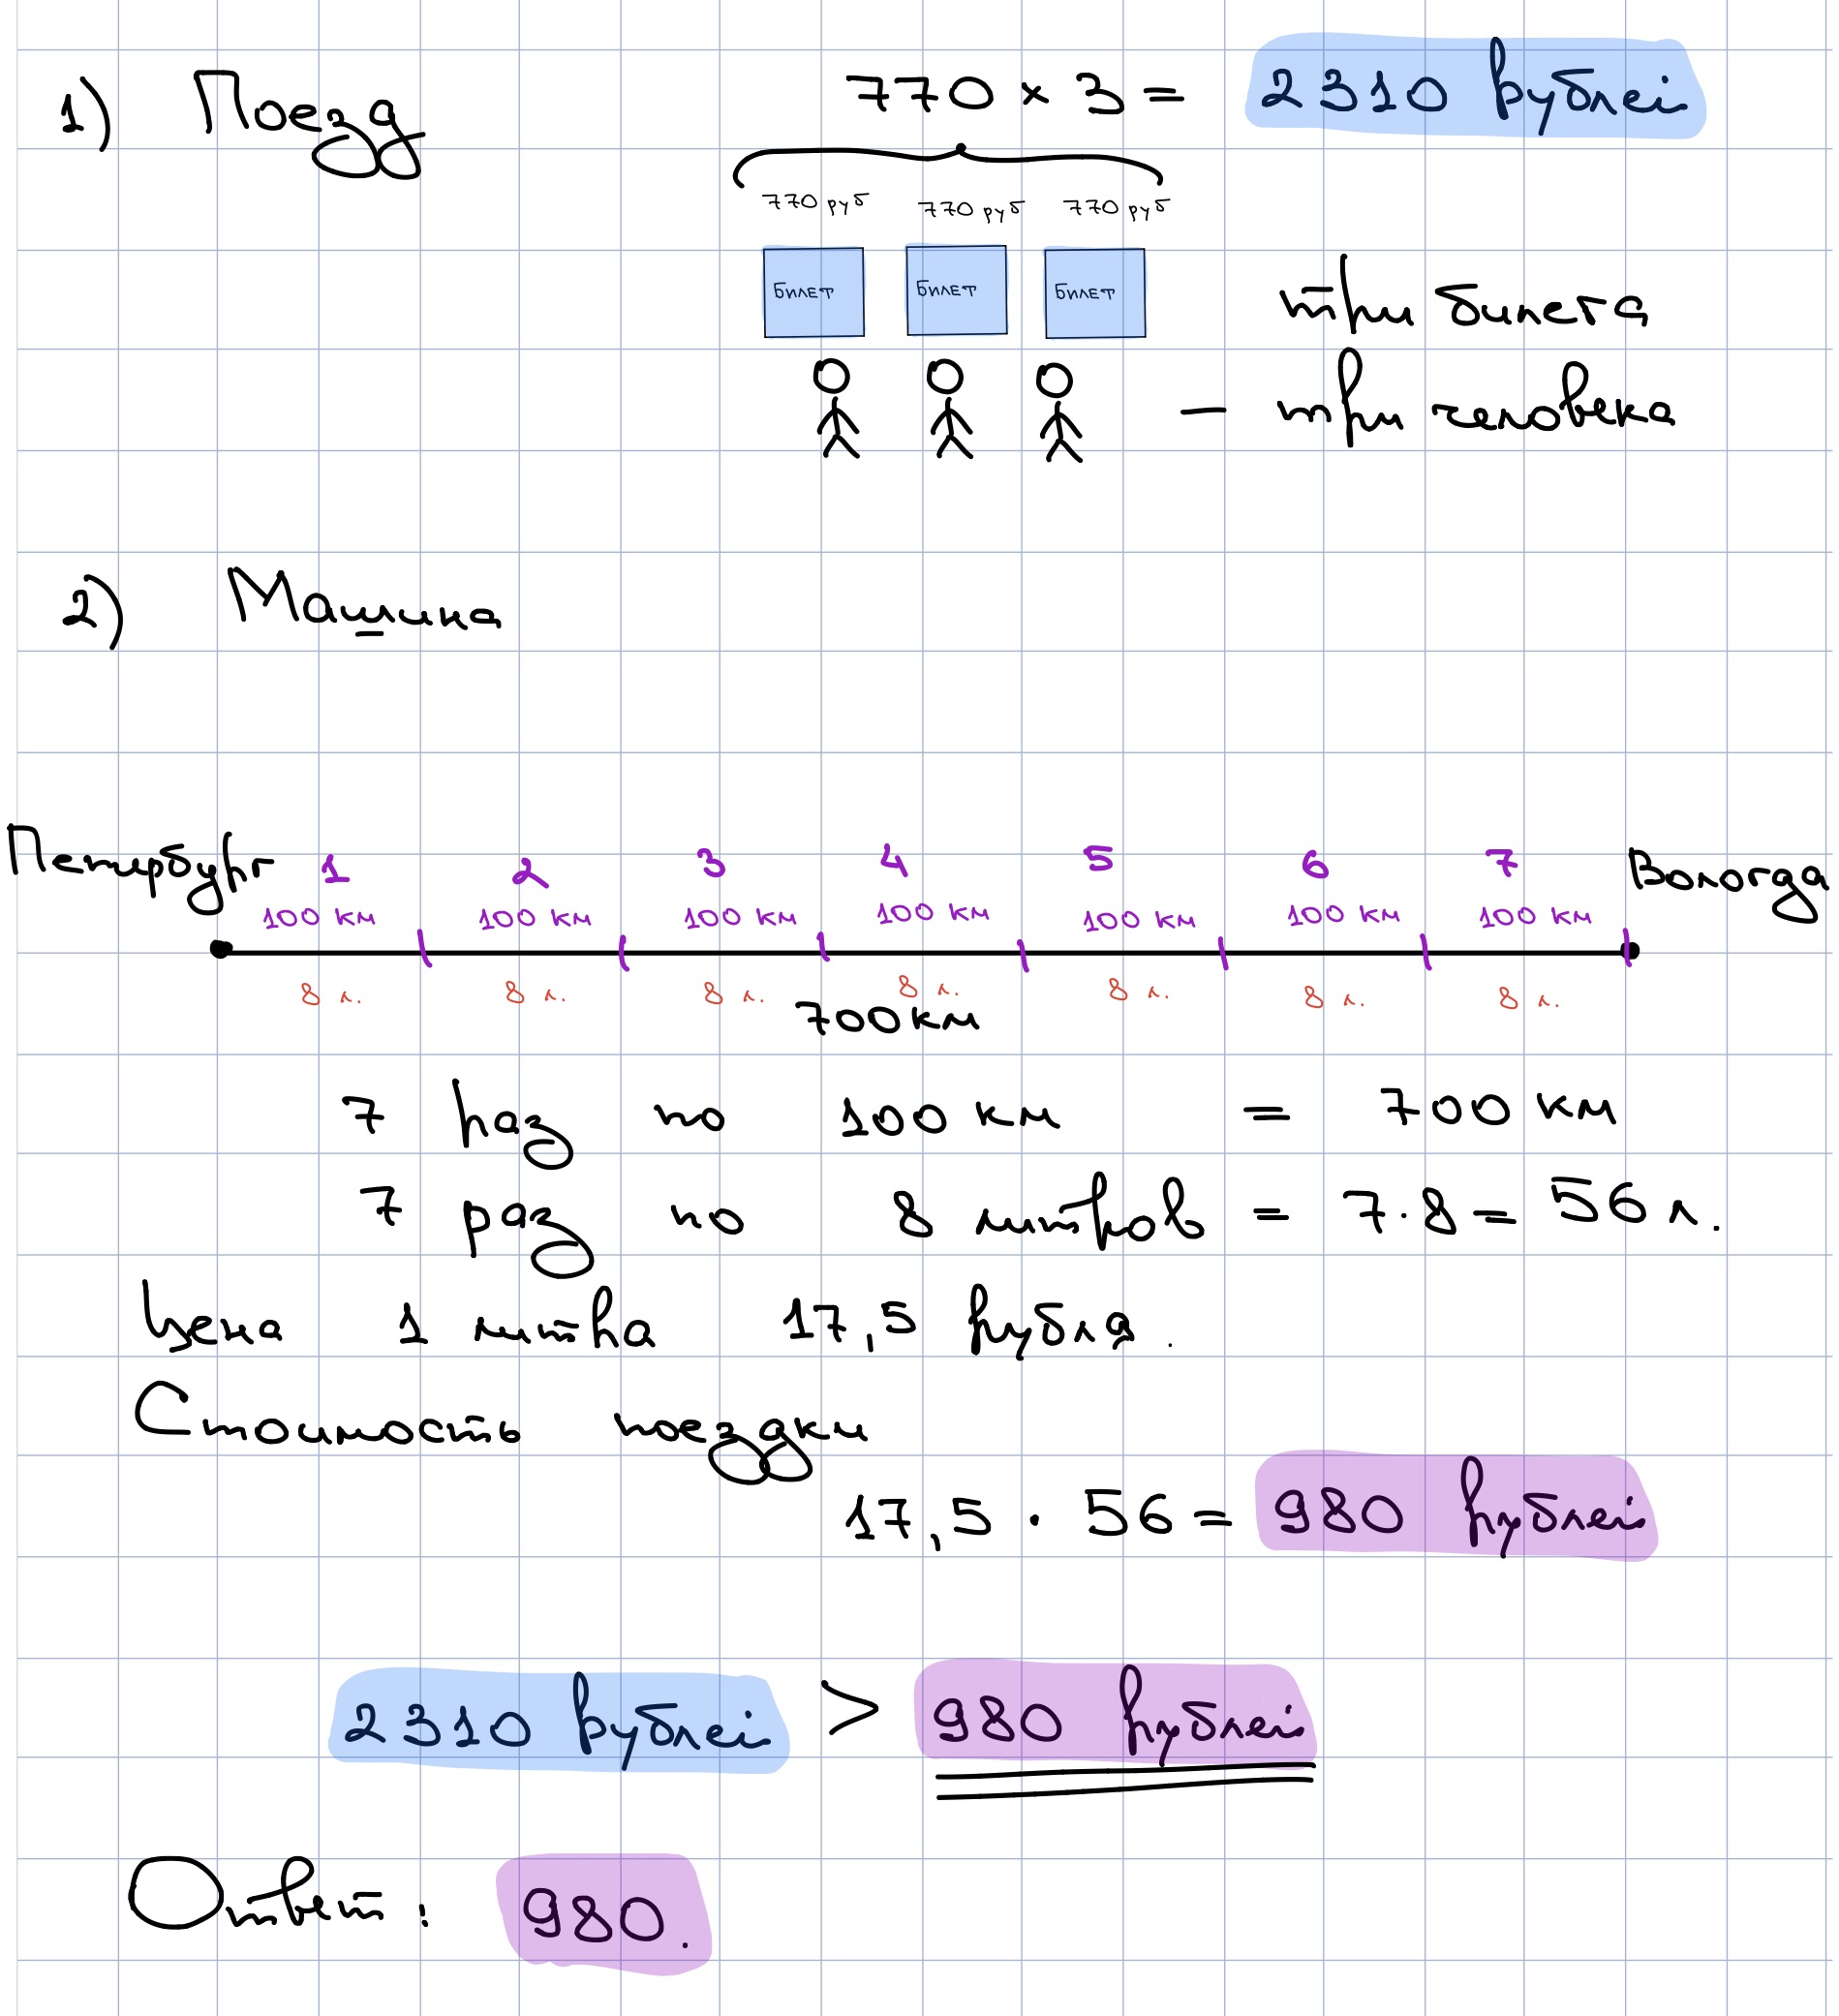 1) Поезд
770 × 3 = 2310 рублей
770 руб 770 руб 770 руб
Билет Билет Билет
три билета
— три человека
2) Машина
Петербург 1 2 3 4 5 6 7 Вологда
100 км 100 км 100 км 100 км 100 км 100 км 100 км
8 л. 8 л. 8 л. 8 л. 8 л. 8 л. 8 л.
700 км
7 раз по 100 км = 700 км
7 раз по 8 литров = 7 · 8 = 56 л.
Цена 1 литра 17,5 рубля.
Стоимость поездки
17,5 · 56 = 980 рублей
2310 рублей > 980 рублей
Ответ: 980.